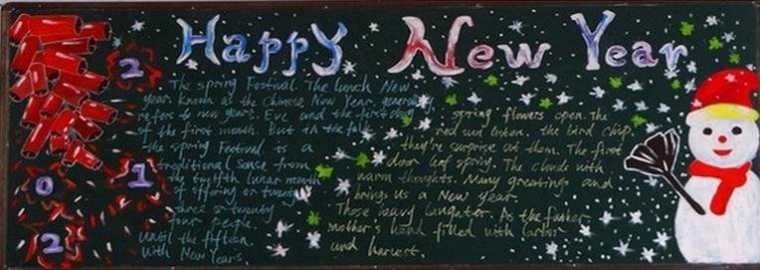 Happy New Year
2
0
1
2
The spring Festival. The lunch New
year known as the Chinese New Year, generally
refers to new years. Eve and the first day
of the first month. But in the folk
the spring Festival is a
traditional sense from
the twelfth lunar month
of offering or twenty
three or twenty
four people.
Until the fifteen
With New Years
spring flowers open. The
red sun listen. the bird chip
they're surprise at them. The first
door leaf spring. The clouds with
warm thoughts. Many greetings and
brings us a New year.
Those heavy laughter. As the
mother's hand filled with labor
and harvest.